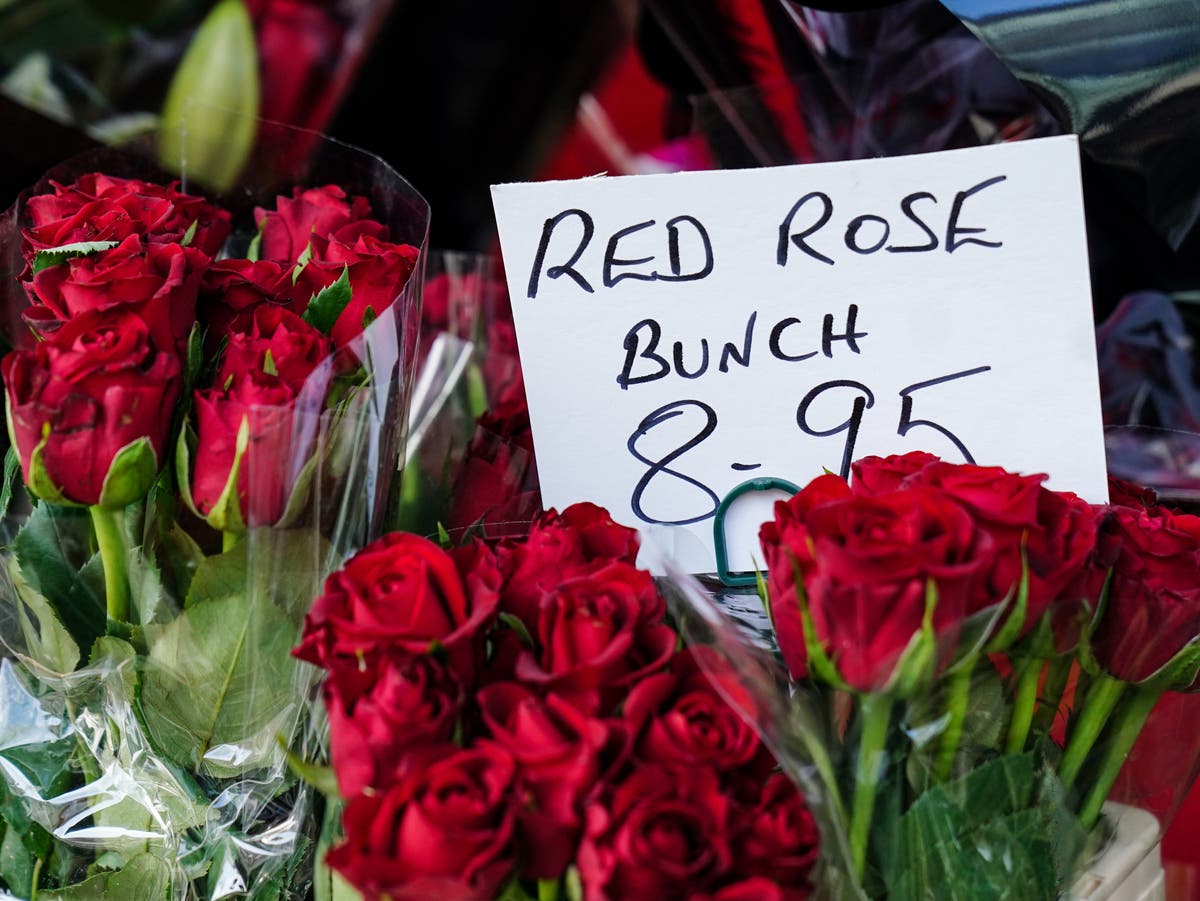 RED ROSE
BUNCH
8-95